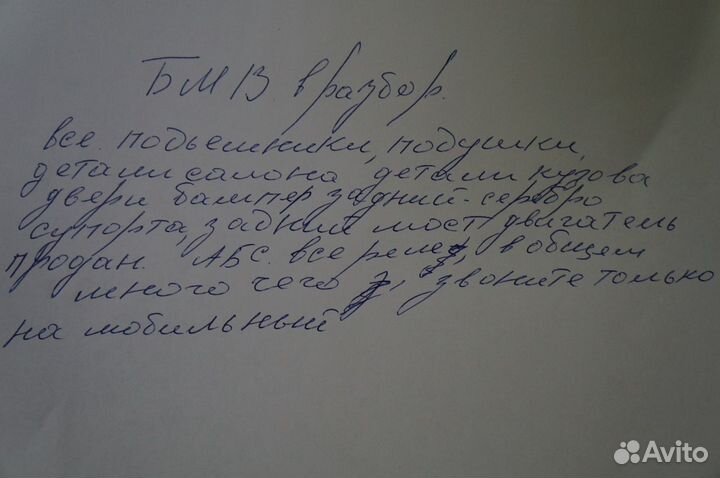 БМВ в разбор.
все подьемники, подушки,
детали салона детали кузова
двери бампер задний-серебро
супорта, задний мост двигатель
продан. АБС. все реле, в общем
много чего, звоните только
на мобильный
Avito